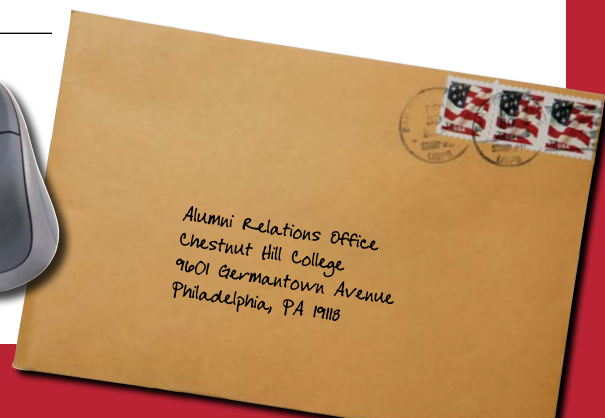 Alumni Relations Office
Chestnut Hill College
9601 Germantown Avenue
Philadelphia, PA 19118
USA
USA
USA
USPS
USPS